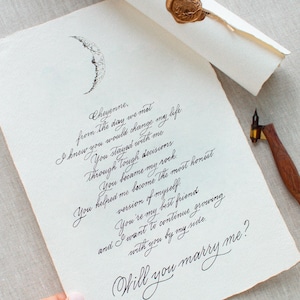 Cheyenne,
from the day we met
I knew you would change my life
You stayed with me
Through tough decisions
You became my rock
You helped me become the most honest
version of myself
You're my best friend
and I want to continue growing
with you by my side.
Will you marry me?